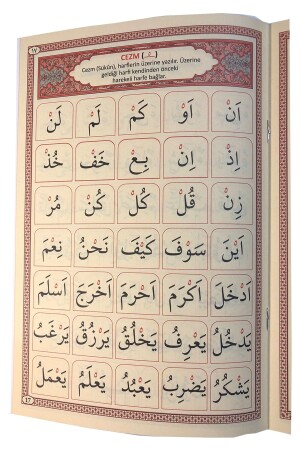 ١٧
CEZM (ـْـ)
Cezm (Sükûn), harflerin üzerine yazılır. Üzerine
geldiği harfi kendinden önceki
harekeli harfe bağlar.
اَنْ اَوْ كَمْ لَمْ لَنْ
اِذْ اِنْ بِعْ خَفْ خُذْ
زِنْ قُلْ كُلْ كُنْ مُرْ
اَيْنَ سَوْفَ كَيْفَ نَحْنُ نِعْمَ
اَدْخَلَ اَكْرَمَ اَحْرَمَ اَخْرَجَ اَسْلَمَ
يَدْخُلُ يَعْرِفُ يَخْلُقُ يَرْزُقُ يَرْغَبُ
يَشْكُرُ يَضْرِبُ يَعْبُدُ يَعْلَمُ يَعْمَلُ
17